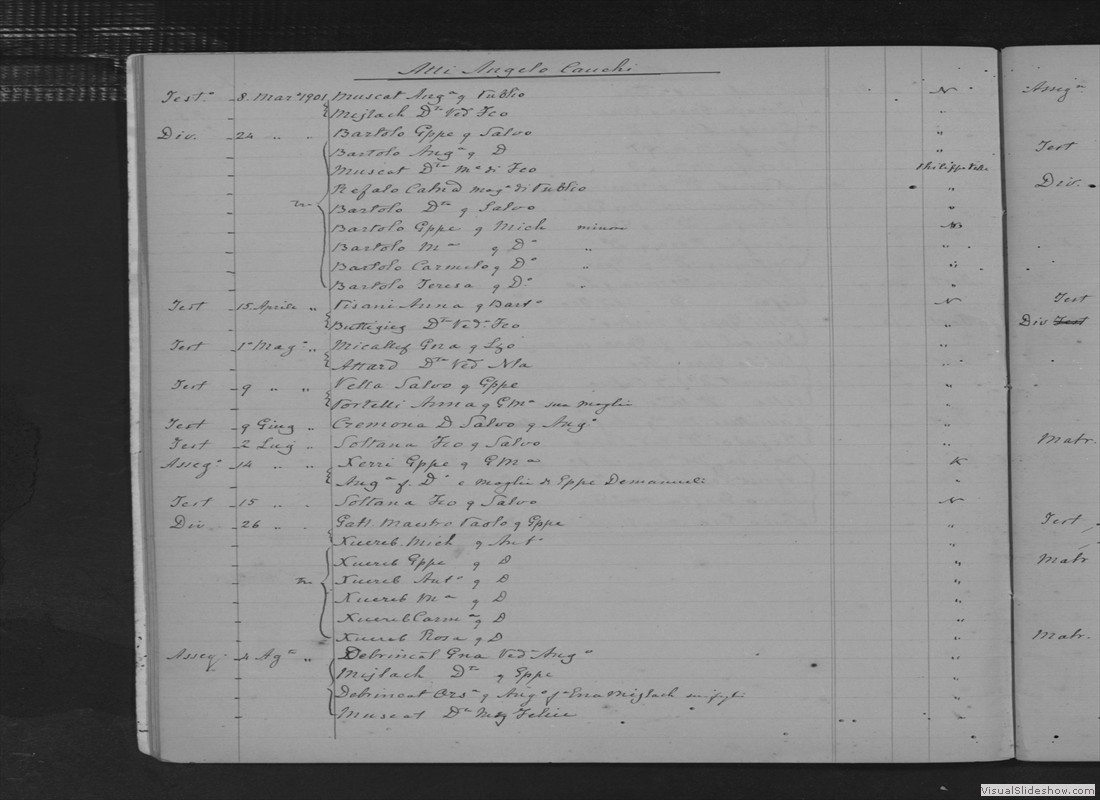 Atti Angelo Cauchi
Test.o 8 Mar.o 1901 Muscat Ang.a q Publio N
Mizlach D.ta Ved. Fco "
Div. 24 " " Bartolo Gppe q Salvo "
Bartolo Ang.a q D "
Muscat D.ta M.e di Fco Philippeville
Refalo Calcd.a mog. di Publio "
tra Bartolo D.ta q Salvo "
Bartolo Gppe q Mich minore N
Bartolo M.a q D.o " "
Bartolo Carmelo q D.o " "
Bartolo Teresa q D.o " "
Test 15 Aprile " Pisani Anna q Bart.o N
Buttigieg D.ta Ved. Fco "
Test 1.o Mag.o " Micallef Gna q Lzo "
Attard D.ta Ved Nla "
Test 9 " " Vella Salvo q Gppe "
Portelli Anna q GMa sua moglie "
Test 9 Giug " Cremona D Salvo q Ang.o "
Test 2 Lug " Soltana Fco q Salvo "
Asseg.o 14 " " Xerri Gppe q GMa K
Ang.a f. D.o e moglie di Gppe Demanueli "
Test 15 " " Soltana Fco q Salvo N
Div 26 " " Gatt Maestro Paolo q Gppe "
Xuereb Mich q Ant.o "
Xuereb Gppe q D "
tra Xuereb Ant.o q D "
Xuereb M.a q D "
Xuereb Carm.a q D "
Xuereb Rosa q D "
Asseg. 4 Ag.to " Debrincat Gna Ved. Ang.o "
Mizlach D.ta q Gppe "
Debrincat Ors.a q Ang.o Mizlach "
Muscat D.ta Mog Felice
Test
Div.
Test
Div Test
Matr.
Test
Matr
Matr.
VisualSlideshow.com